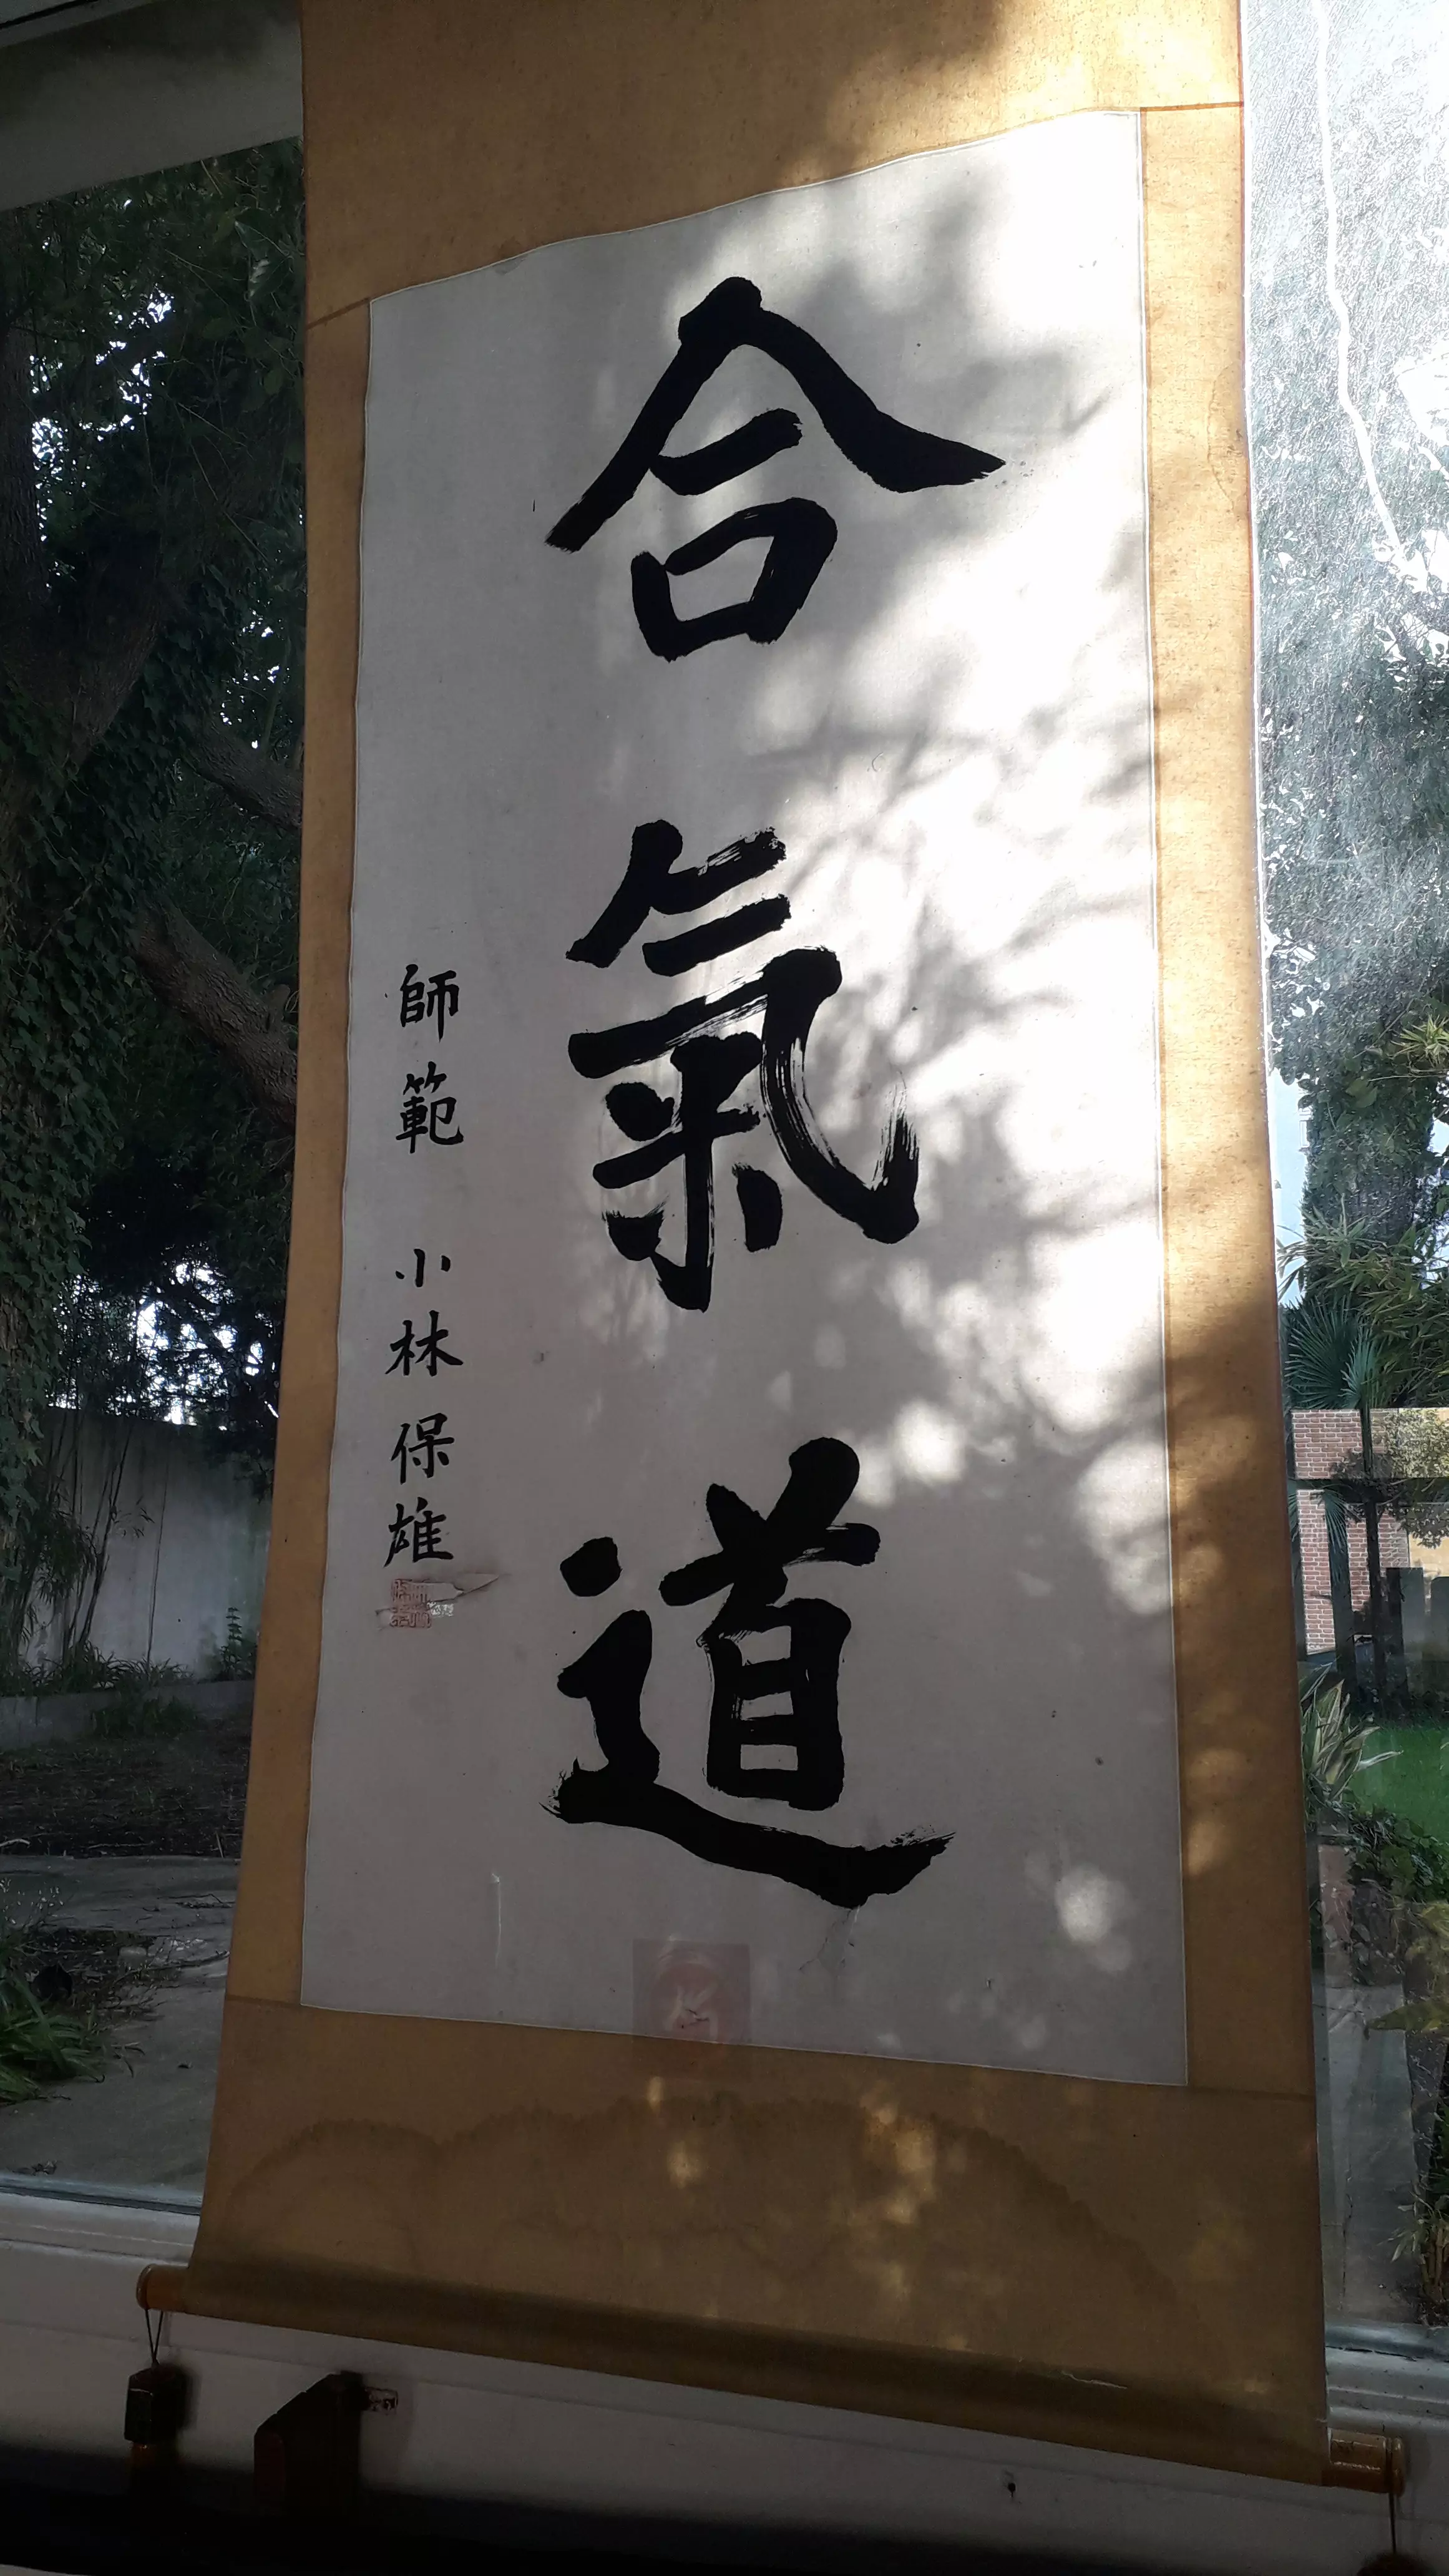 合氣道
師範 小林保雄